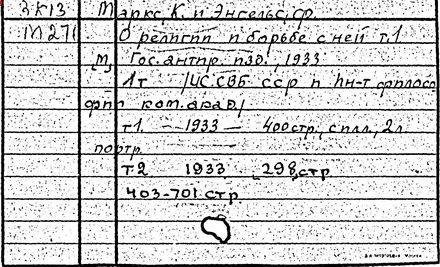 3К13 Маркс, К. и Энгельс, Ф.
М271 О религии и борьбе с ней т.1
[М], Гос. антир. изд., 1933
2т /ЦС.СВБ сср и Ин-т филосо
фии ком. акад./
т1. - 1933 - 400стр, с илл, 2л.
портр.
т2 1933 298 стр
403-701 стр